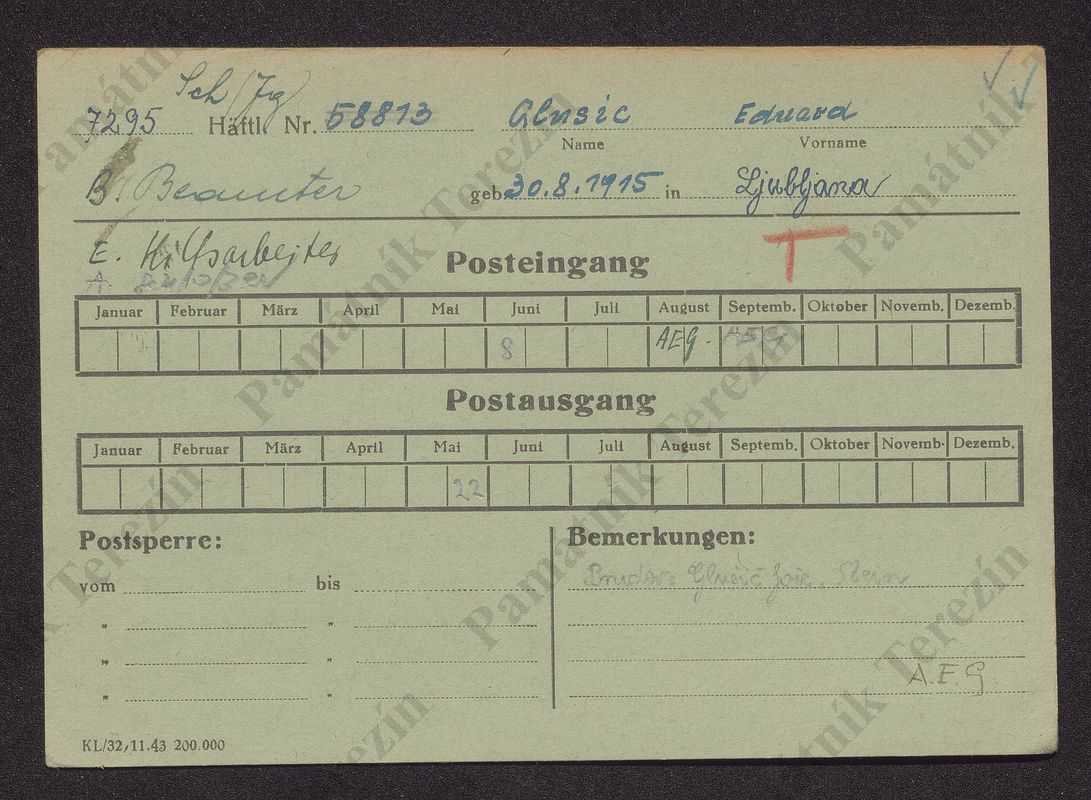 Sch/Jg
7295 Häftl. Nr. 58813 Glusic Eduard
Name Vorname
B. Beamter geb. 30.8.1915 in Ljubljana
E. Hilfsarbeiter
Posteingang T
A.
Januar Februar März April Mai Juni Juli August Septemb. Oktober Novemb. Dezemb.
8 AEG. AEG.
Postausgang
Januar Februar März April Mai Juni Juli August Septemb. Oktober Novemb. Dezemb.
22
Postsperre: Bemerkungen:
vom bis
" "
" "
" "
A.E.G.
KL/32, 11.43 200.000
Památník Terezín